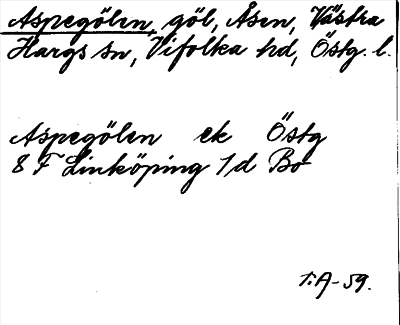 Aspegölen, göl, Åsen, Västra
Hargs sn, Vifolka hd, Östg. l.
Aspegölen ek Östg
8 F Linköping 1d Bo
T:A-59.